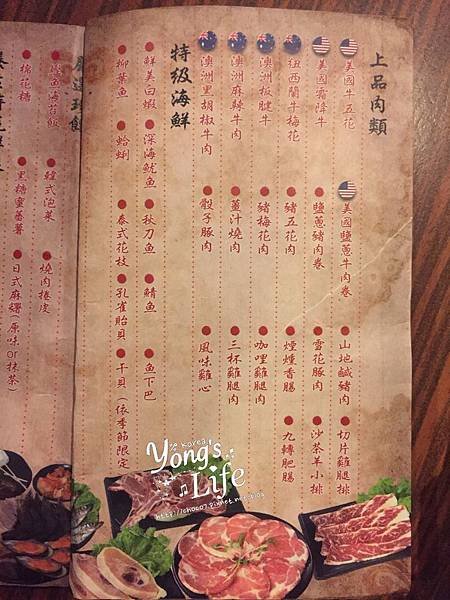 上品肉類
美國牛五花 美國鹽蔥牛肉卷 山地鹹豬肉 切片雞腿排
美國霜降牛 鹽蔥豬肉卷 雪花豚肉 沙茶羊小排
紐西蘭牛梅花 豬五花肉 煙燻香腸 九轉肥腸
澳洲板腱牛 豬梅花肉 咖哩雞腿肉
澳洲麻辣牛肉 薑汁燒肉 三杯雞腿肉
澳洲黑胡椒牛肉 骰子豚肉 風味雞心
特級海鮮
鮮美白蝦 深海魷魚 秋刀魚 鯖魚 魚下巴
柳葉魚 蛤蜊 泰式花枝 孔雀貽貝 干貝(依季節限定)
魚海苔飯 韓式泡菜 燒肉捲皮
棉花糖 黑糖蜜蕃薯 日式麻糬(原味or抹茶)
Korea
Yong's
Life